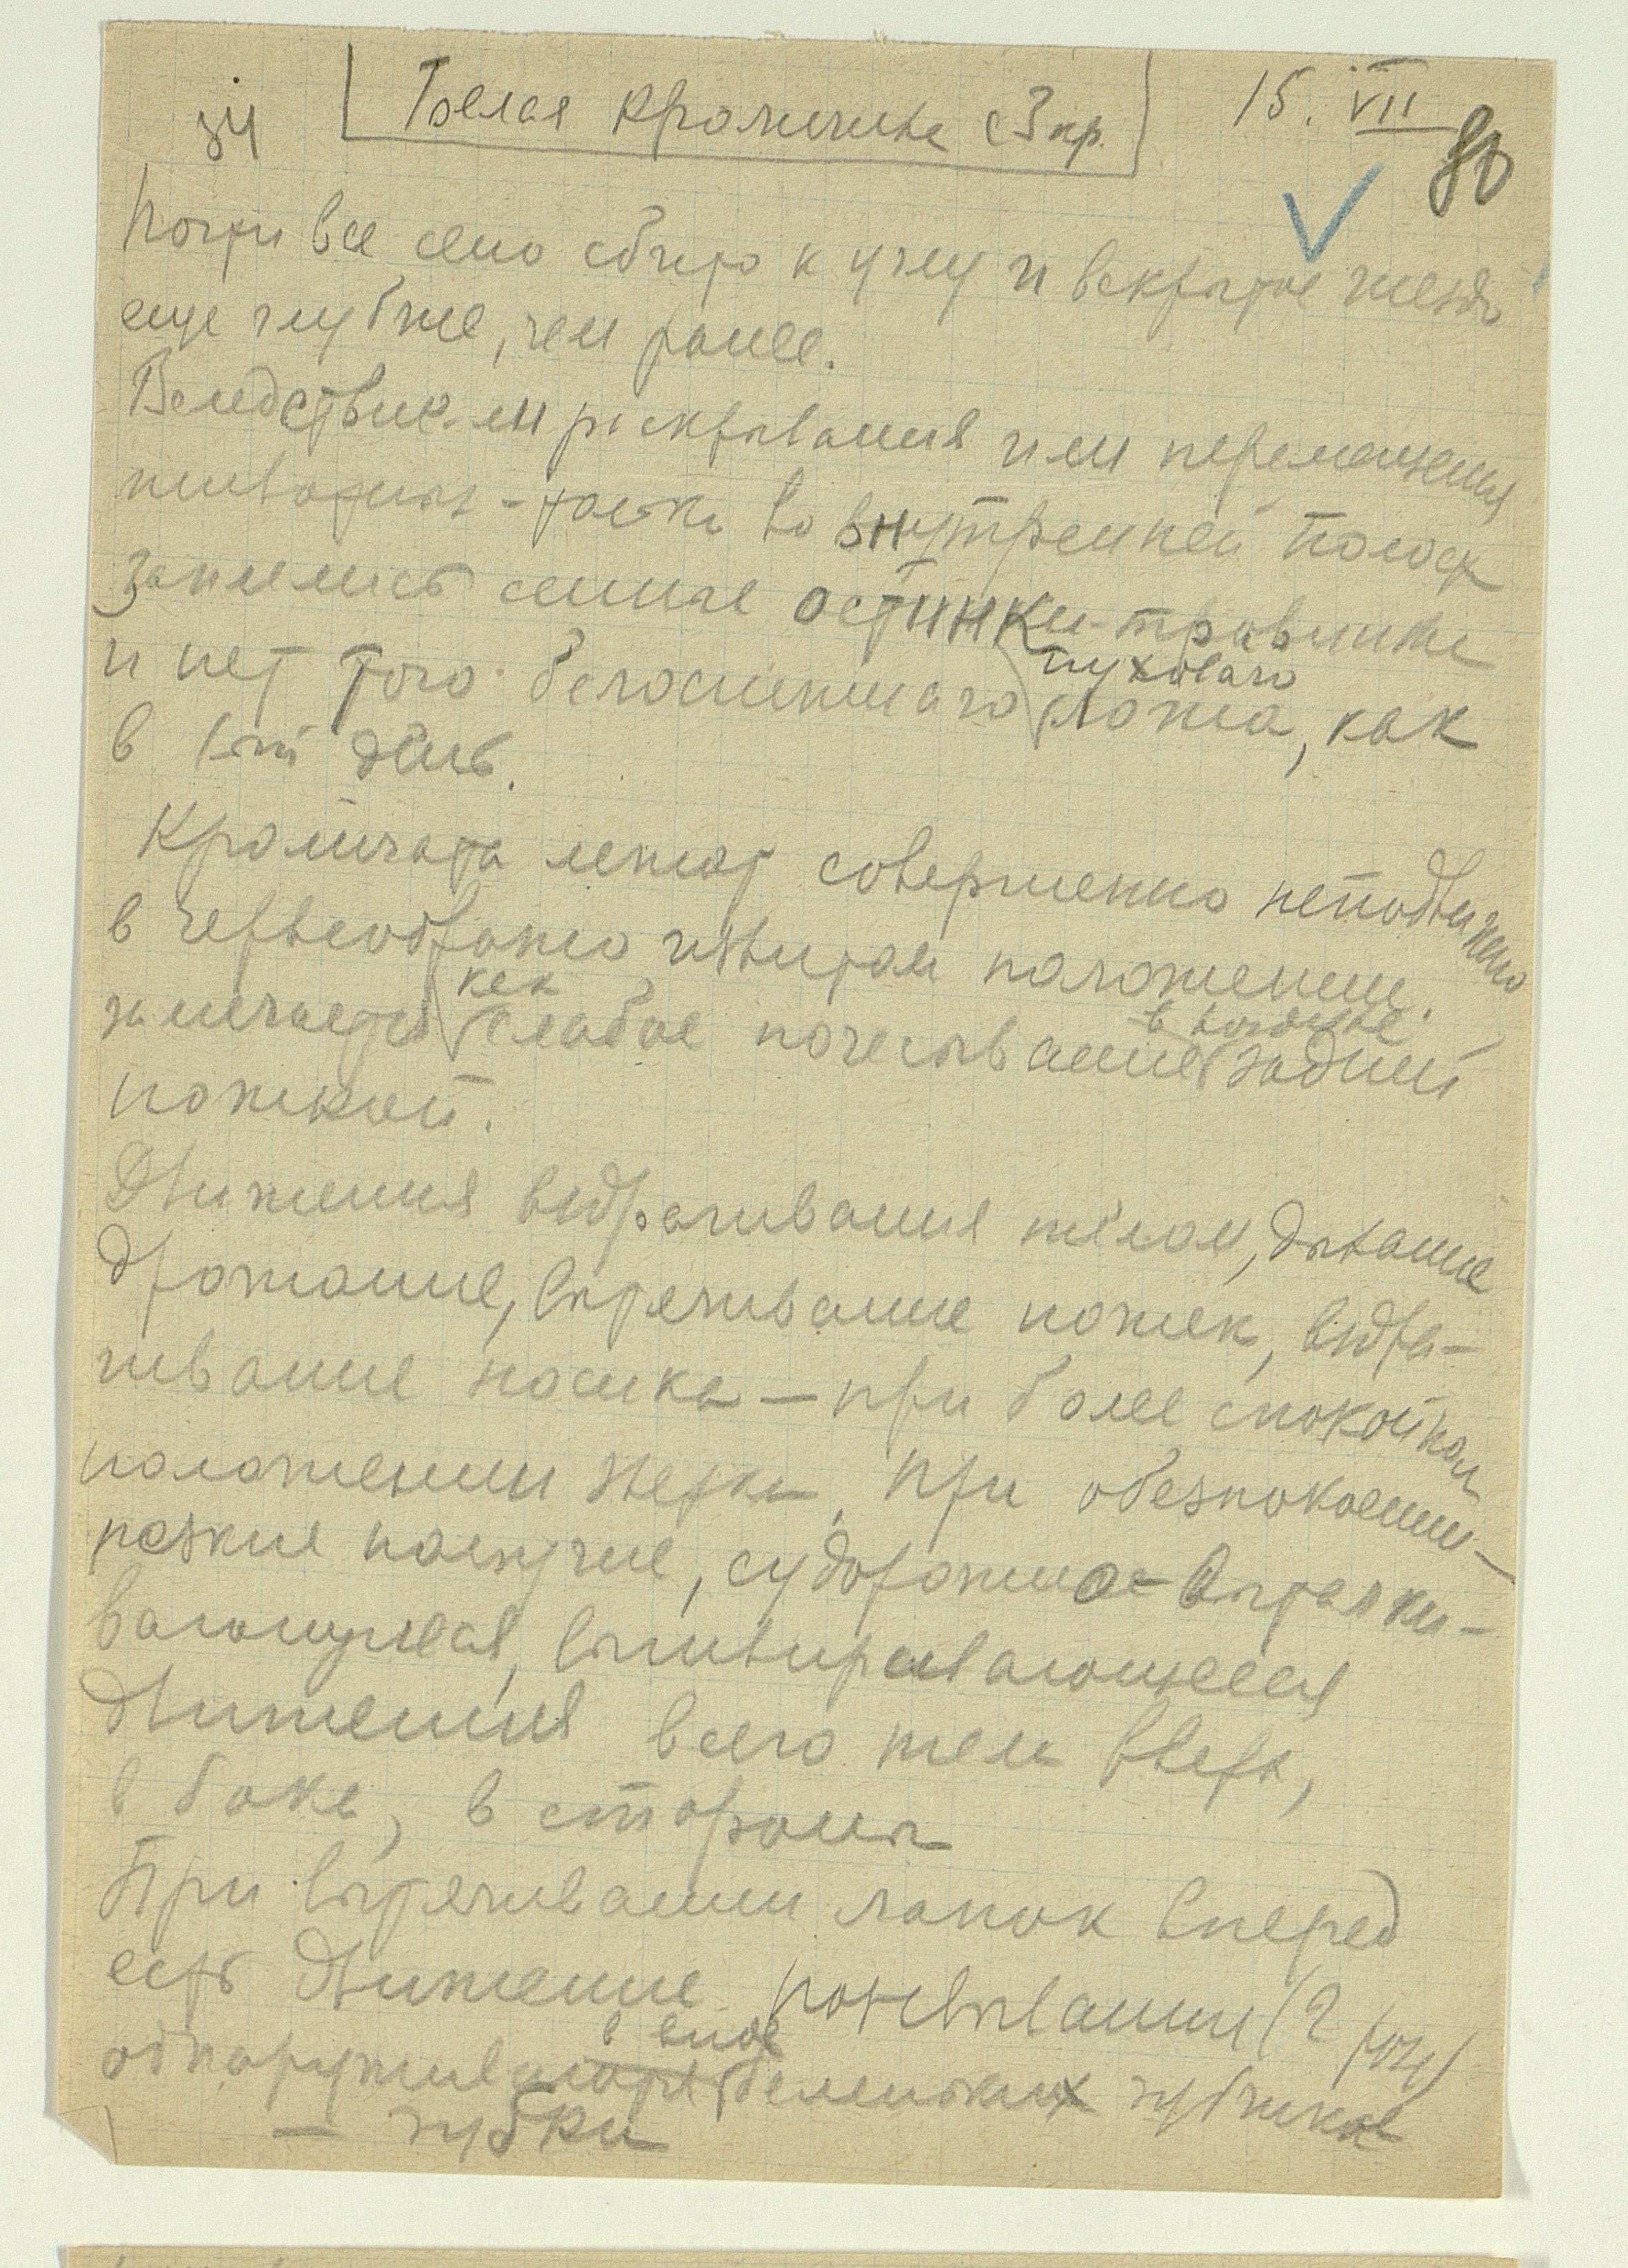 34 [Белая крольчиха с 3 кр.] 15. VII
80
Почти все сено сбито к углу и вскрытое гнездо
еще глубже, чем ранее.
Вследствие ли раскрывания или перемещения
во внутренней полост
занились сенные остинки-травинки
и нет того белоснежнаго пухового ложа, как
в 1-ый день.
Крольчата лежат совершенно неподвижно
в червеобразно извитом положении.
замечается как слабое почесывание в воздухе задней
ножкой.
Движения вздрагивания телом, дыхание
дрожание, вытягивание ножек, вздра-
гивание носика – при более спокойном
положении зверка. При обезпокоении –
резкие паскучие, судорожно – выталки-
вающееся, вышвыривающееся
движения всего тела вверх,
в бока, в стороны
При вытягивании лапок вперед
есть движение позевывания (2 
обнаруживаются в виде беленьких зубчиков
– зубки